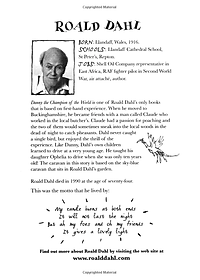 ROALD DAHL
BORN: Llandaff, Wales, 1916.
SCHOOLS: Llandaff Cathedral School,
St Peter's, Repton.
JOBS: Shell Oil Company representative in
East Africa, RAF fighter pilot in Second World
War, air attaché, author.
Danny the Champion of the World is one of Roald Dahl's only books
that is based on first-hand experience. When he moved to
Buckinghamshire, he became friends with a man called Claude who
worked in the local butcher's. Claude had a passion for poaching and
the two of them would sometimes sneak into the local woods in the
dead of night to catch pheasants. Dahl never caught
a single bird, but enjoyed the thrill of the
experience. Like Danny, Dahl's own children
learned to drive at a very young age. He taught his
daughter Ophelia to drive when she was only ten years
old! The caravan in this story is based on the sky-blue
caravan that sits in Roald Dahl's garden.
Roald Dahl died in 1990 at the age of seventy-four.
This was the motto that he lived by:
My candle burns at both ends
It will not last the night
But ah my foes and oh my friends
It gives a lovely light.
Find out more about Roald Dahl by visiting the web site at
www.roalddahl.com